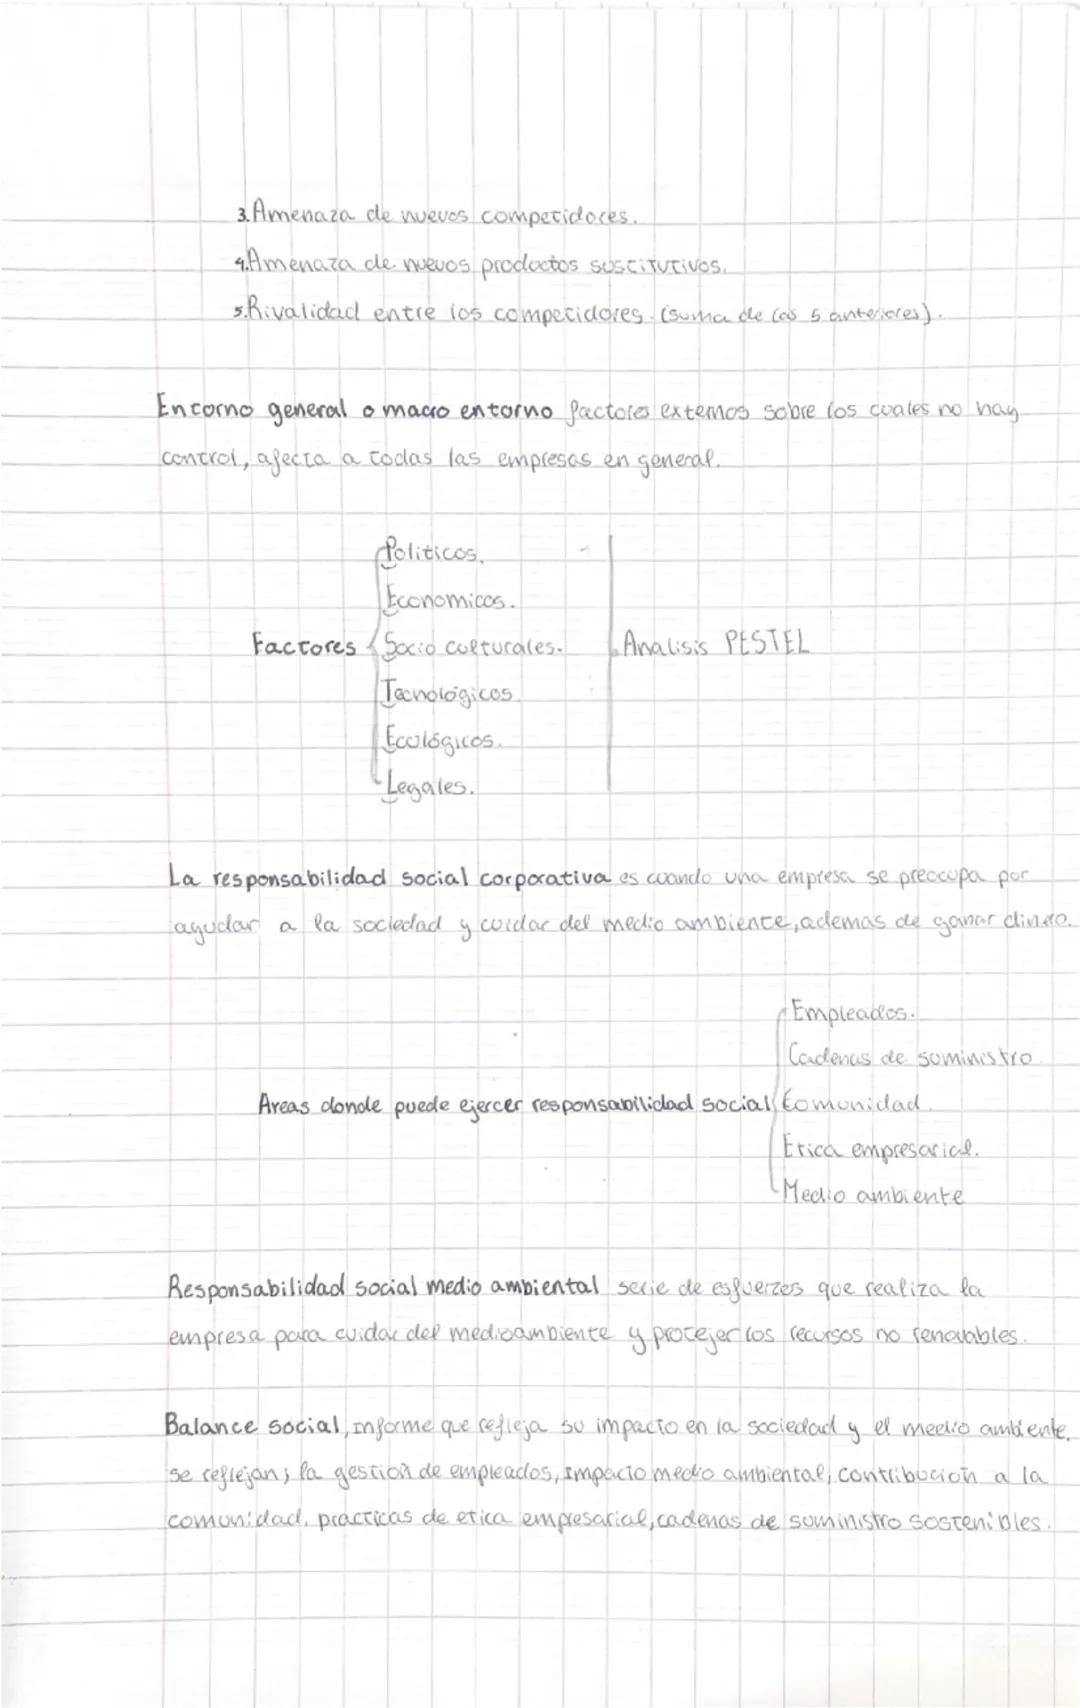 3.Amenaza de nuevos competidores.
4.Amenaza de nuevos productos sustitutivos.
5.Rivalidad entre los competidores. (suma de las 5 anteriores).
Entorno general o macro entorno factores externos sobre los cuales no hay
control, afecta a todas las empresas en general.
Politicos.
Economicos.
Factores Socio culturales. Analisis PESTEL
Tecnológicos.
Ecológicos.
Legales.
La responsabilidad social corporativa es cuando una empresa se preocupa por
ayudar a la sociedad y cuidar del medio ambiente, ademas de ganar dinero.
Empleados.
Cadenas de suministro.
Areas donde puede ejercer responsabilidad social Comunidad.
Etica empresarial.
Medio ambiente
Responsabilidad social medio ambiental serie de esfuerzos que realiza la
empresa para cuidar del medioambiente y protejer los recursos no renovables.
Balance social, informe que refleja su impacto en la sociedad y el medio ambiente.
se reflejan; la gestión de empleados, impacto medio ambiental, contribución a la
comunidad, practicas de etica empresarial, cadenas de suministro sostenibles.